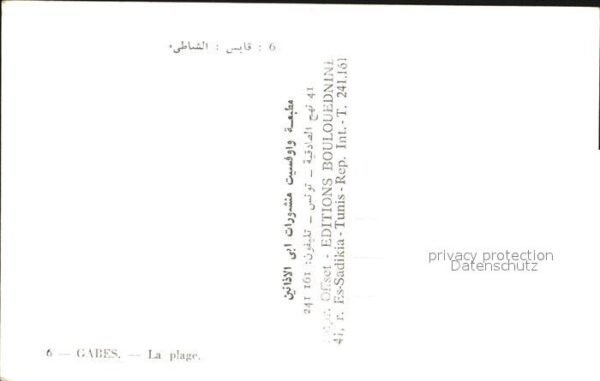 6 : قابس : الشاطىء
مطبعة واوفسيت منشورات ابى الاذانين
41 نهج الصادقية - تونس - تليفون: 161 241
Offset - EDITIONS BOULOUEDNINE
41, r. Es-Sadikia - Tunis - Rep. Int. - T. 241.161
privacy protection
Datenschutz
6 — GABES. — La plage.